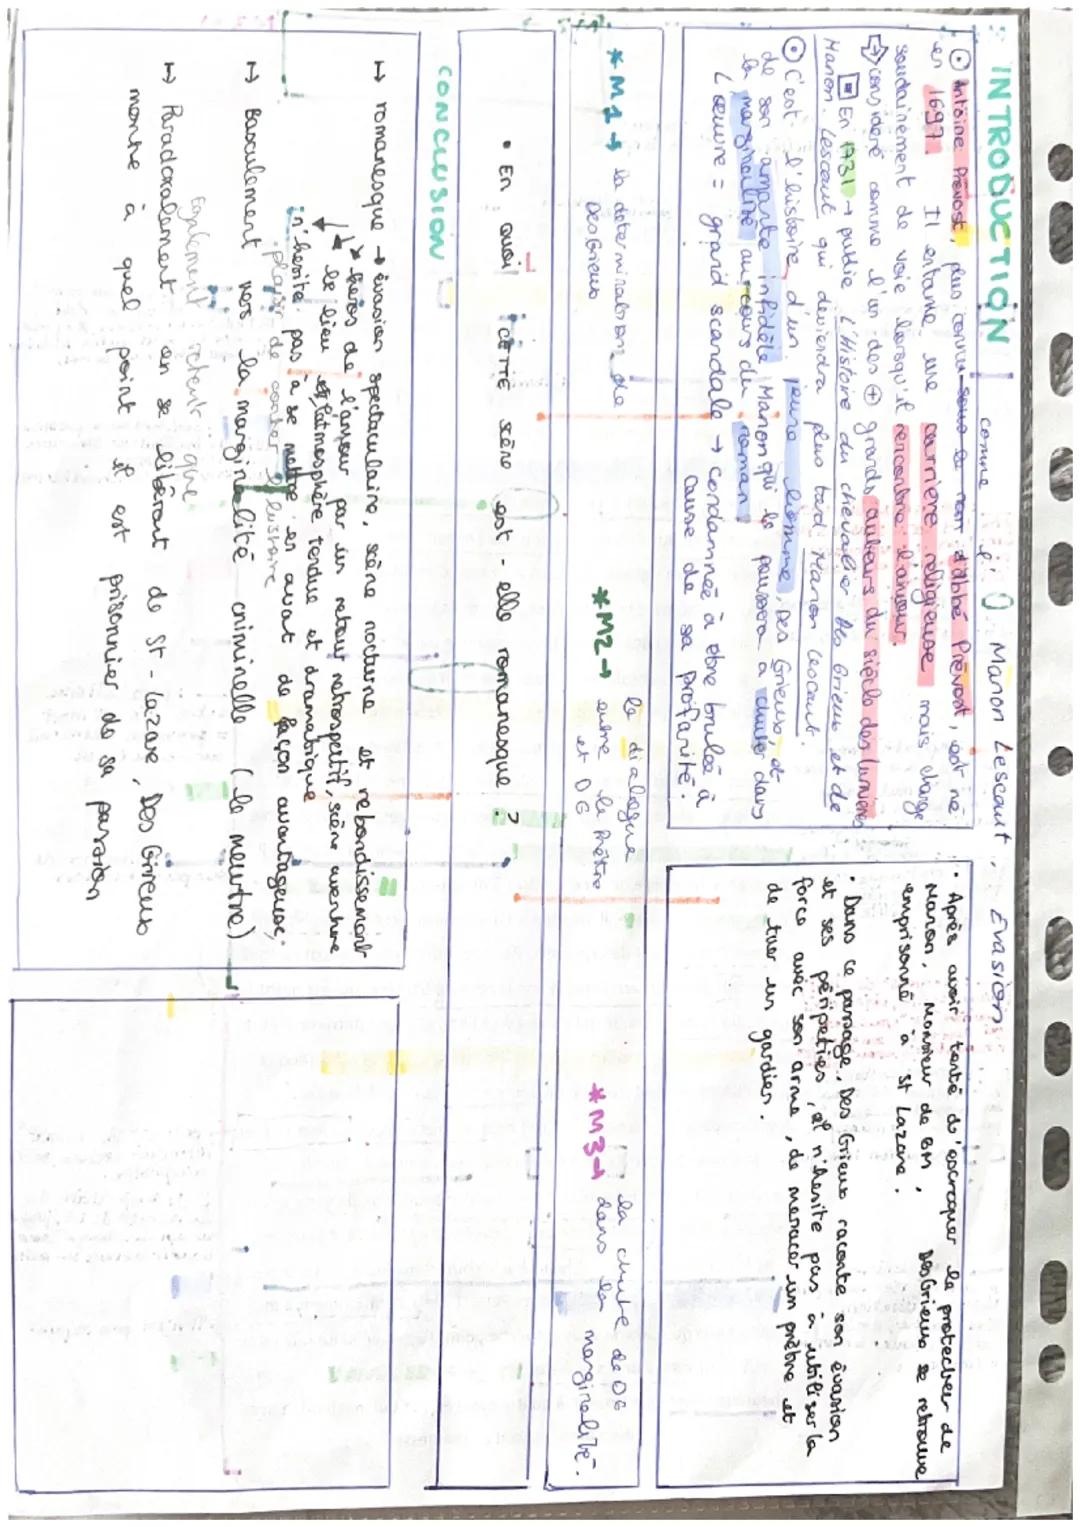 INTRODUCTION
Manon Lescaut Evasion
comme l'
⊙ Antoine Prévost, plus connu sous le nom d'abbé Prévost, est né
en 1697. Il entame une carrière religieuse mais change
soudainement de voie lorsqu'il rencontre l'amour.
⇨ considéré comme l'un des ⊕ grands auteurs du siècle des lumières
En 1731 → publie l'Histoire du chevalier des Grieux et de
Manon Lescaut qui deviendra plus tard Manon Lescaut.
⊙ C'est l'histoire d'un jeune homme, Des Grieux et
de son amante infidèle Manon qui le poussera à chuter dans
la marginalité au cours du roman
L'œuvre = grand scandale → condamnée à être brulée à
cause de sa profanité.
• Après avoir tenté d'escroquer le protecteur de
Manon, Monsieur de GM, Des Grieux se retrouve
emprisonné à St Lazare.
• Dans ce passage, Des Grieux raconte son évasion
et ses péripéties, et n'hésite pas à utiliser la
force avec son arme, de menacer un prêtre et
de tuer un gardien.
* M1 → la détermination de
Des Grieux
* M2 → le dialogue
entre le Prêtre
et DG
* M3 → la chute de DG
dans la marginalité.
• En quoi cette scène est elle romanesque ?
CONCLUSION
↦ romanesque → évasion spectaculaire, scène nocturne et rebondissement
héros de l'amour par un retour rétrospectif, scène aventure
le lieu et l'atmosphère tendue et dramatique
n'hésite pas à se mettre en avant de façon avantageuse.
plaisir de conter l'histoire
↦ Basculement vers la marginalité criminelle (le meurtre)
Également lecteur que
↦ Paradoxalement en se libérant de St-Lazare, Des Grieux
montre à quel point il est prisonnier de sa passion